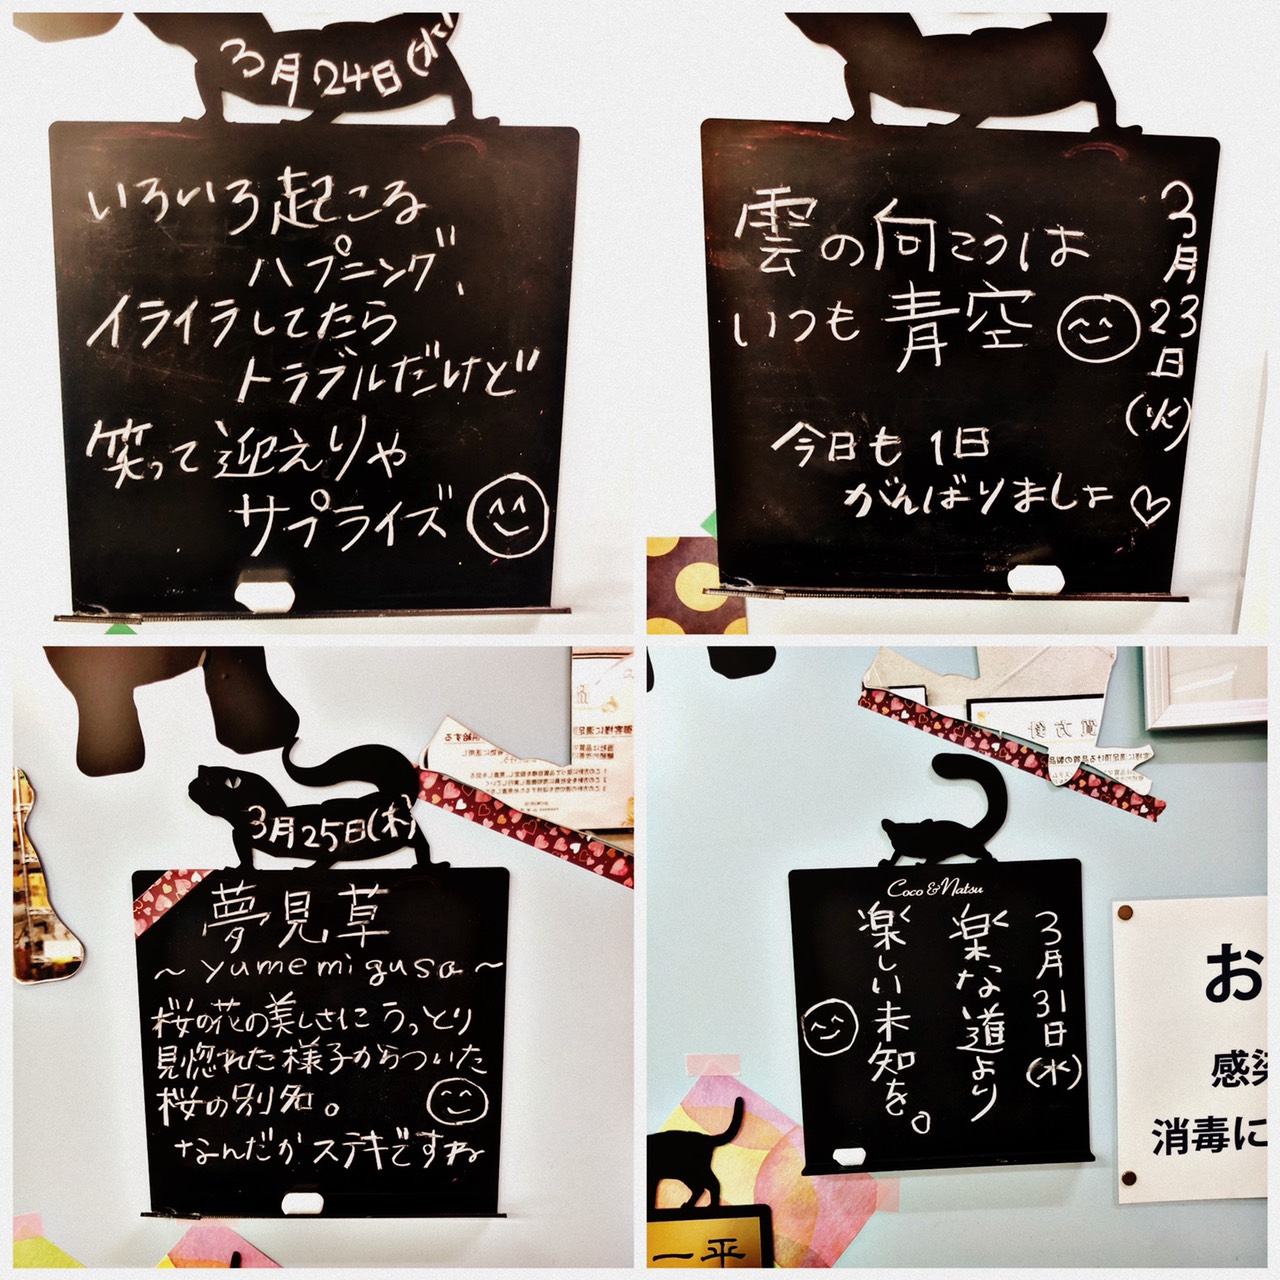 3月24日(水)
いろいろ起こる
ハプニング、
イライラしてたら
トラブルだけど
笑って迎えりゃ
サプライズ
3月23日(火)
雲の向こうは
いつも青空
今日も1日
がんばりましょ♡
3月25日(木)
夢見草
～yumemigusa～
桜の花の美しさにうっとり
見惚れた様子からついた
桜の別名。
なんだかステキですね
Coco & Natsu
3月31日(水)
楽な道より
楽しい未知を。
お
感染
消毒に
一平